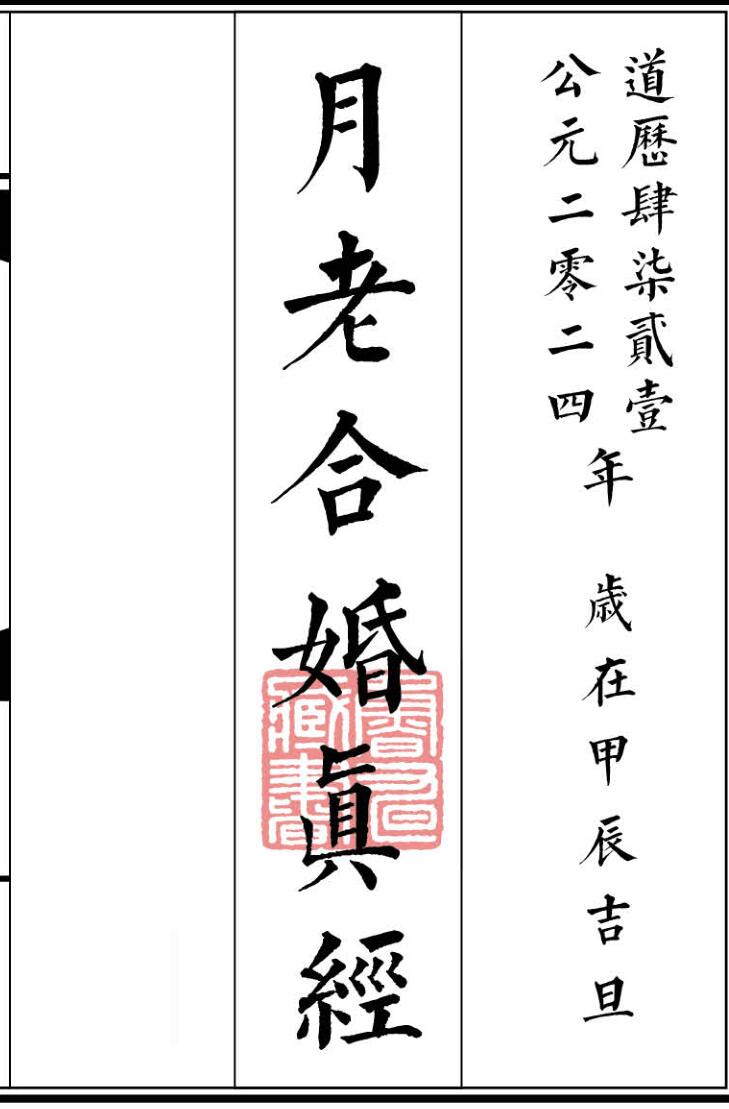 道曆肆柒貳壹
公元二零二四
年 歲在甲辰吉旦
月老合婚眞經